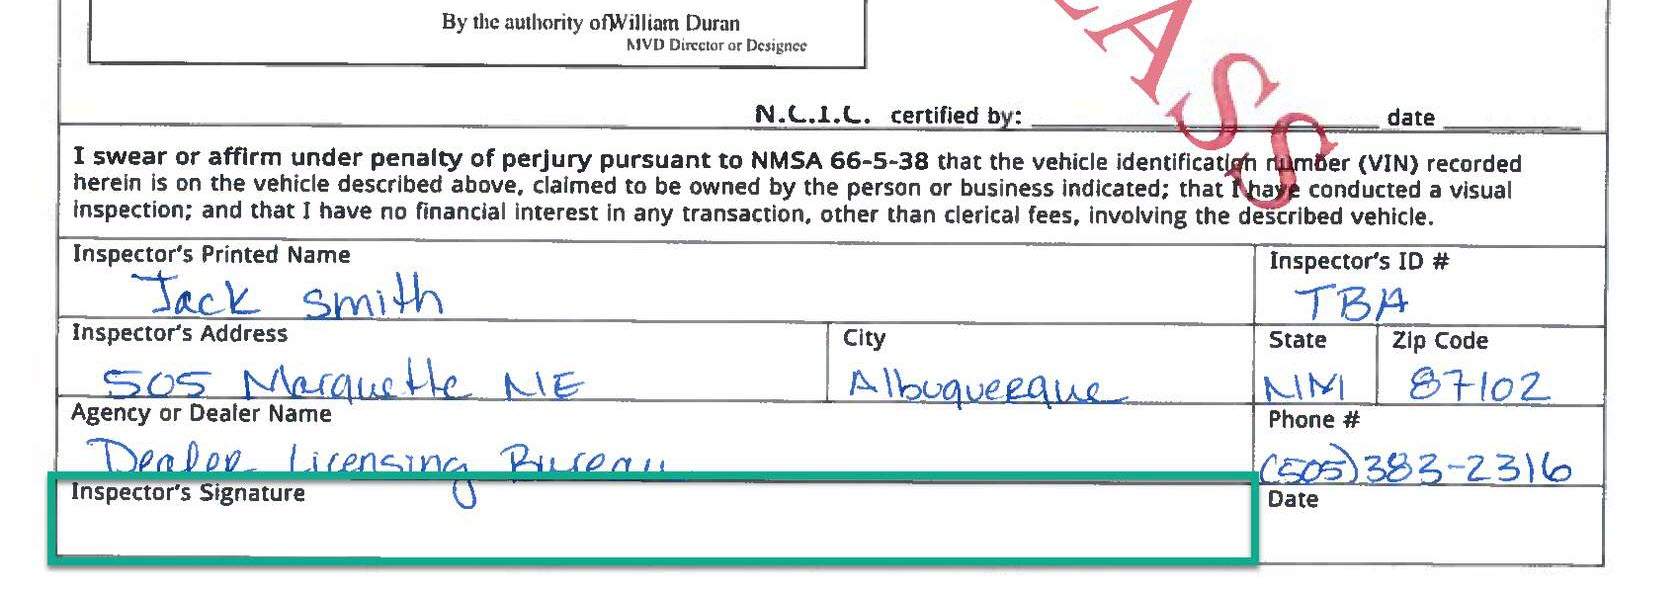 By the authority ofWilliam Duran
MVD Director or Designee
ASS
N.C.I.C. certified by: date
I swear or affirm under penalty of perjury pursuant to NMSA 66-5-38 that the vehicle identification number (VIN) recorded
herein is on the vehicle described above, claimed to be owned by the person or business indicated; that I have conducted a visual
inspection; and that I have no financial interest in any transaction, other than clerical fees, involving the described vehicle.
Inspector's Printed Name
Jack Smith
Inspector's ID #
TBA
Inspector's Address
505 Marquette NE
City
Albuquerque
State
NM
Zip Code
87102
Agency or Dealer Name
Dealer Licensing Bureau
Phone #
(505)383-2316
Inspector's Signature
Date